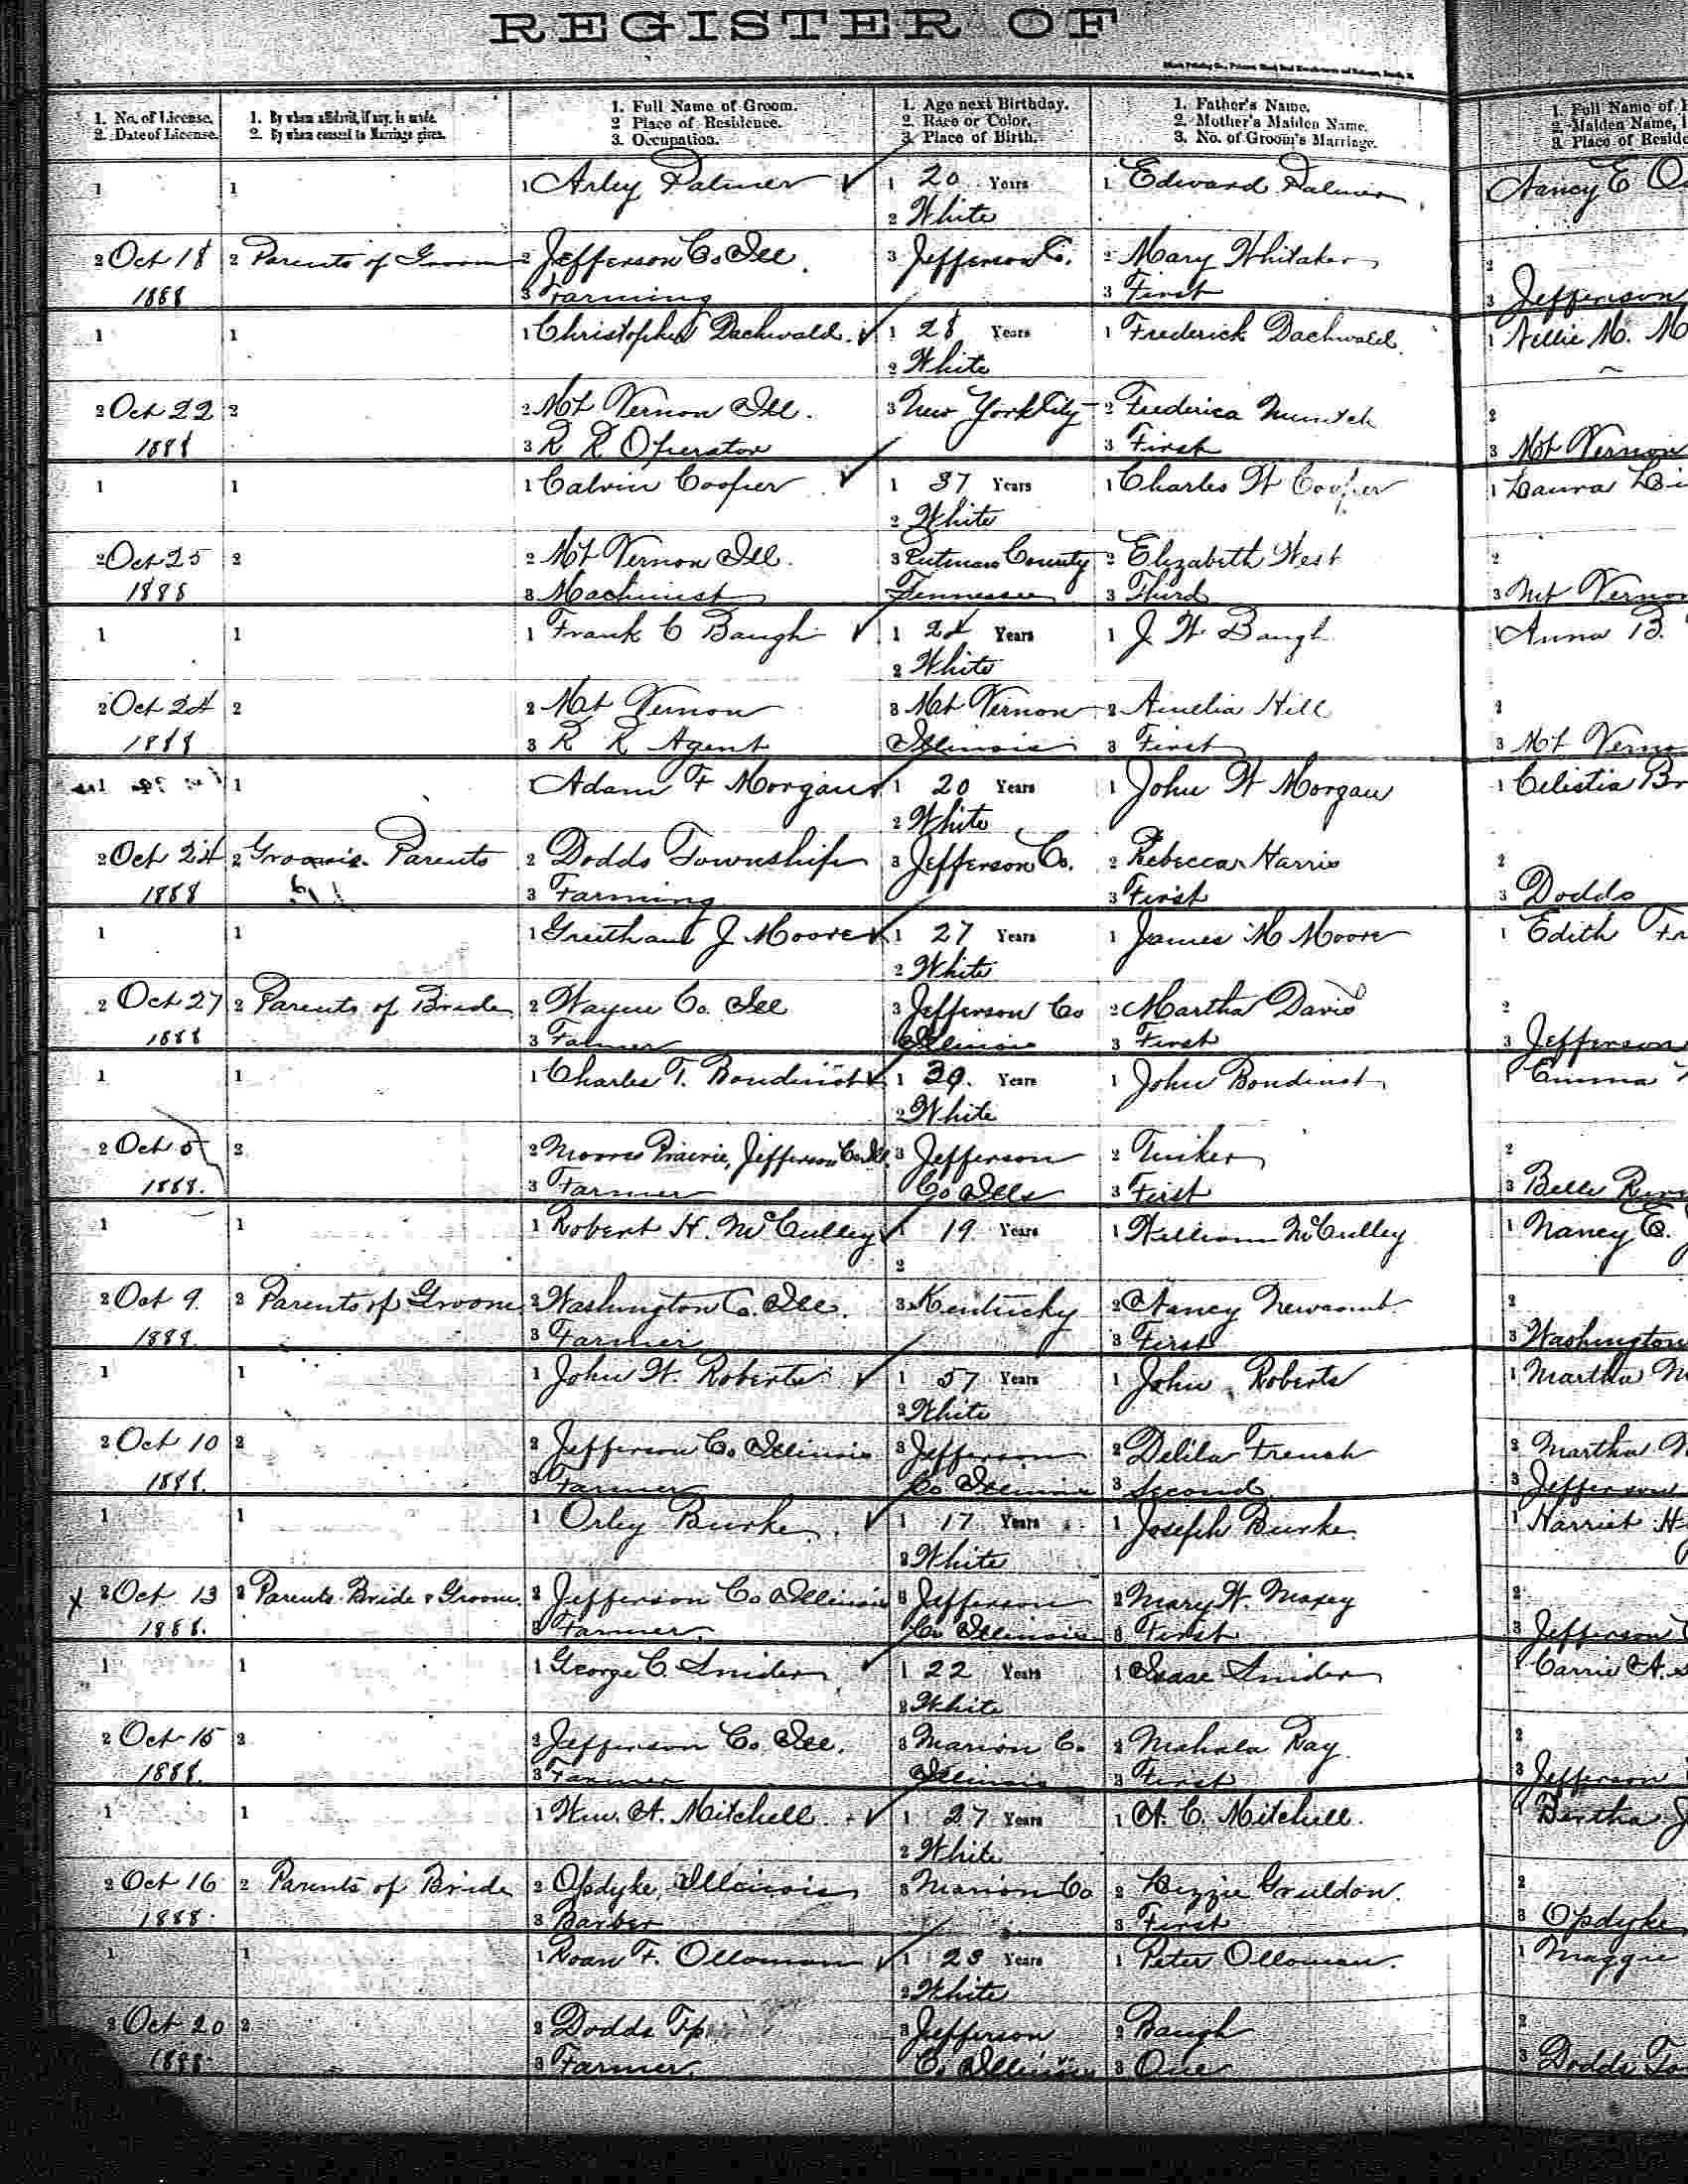 REGISTER OF
1. No. of License. 1. By whom affidavit, if any, is made. 1. Full Name of Groom. 1. Age next Birthday. 1. Father's Name. 1. Full Name of
2. Date of License. 2. By whom consent to Marriage given. 2 Place of Residence. 2. Race or Color. 2. Mother's Maiden Name. 2. Maiden Name,
3. Occupation. 3. Place of Birth. 3. No. of Groom's Marriage. 3. Place of
1 1 1 Arley Palmer 1 20 Years 1 Edward Palmer Nancy E
2 White
2 Oct 18 2 Parents of Groom 2 Jefferson Co Ill. 3 Jefferson Co. 2 Mary Whitaker 2
1888 3 Farming 3 First 3 Jefferson
1 1 1 Christopher Dachwald. 1 28 Years 1 Frederick Dachwald. 1 Nellie M. M
2 White
2 Oct 22 2 2 Mt Vernon Ill. 3 New York City 2 Frederica 2
1888 3 R R Operator 3 First 3 Mt Vernon
1 1 1 Calvin Cooper 1 37 Years 1 Charles W Cooper 1 Laura
2 White
2 Oct 25 2 2 Mt Vernon Ill. 3 Putnam County 2 Elizabeth West 2
1888 3 Machinist Tennessee 3 Third 3 Mt Vernon
1 1 1 Frank C Baugh 1 24 Years 1 J W Baugh 1 Anna B.
2 White
2 Oct 24 2 2 Mt Vernon 3 Mt Vernon 2 Amelia Hill 2
1888 3 R R Agent Illinois 3 First 3 Mt Verno
1 1 Adam F Morgan 1 20 Years 1 John W Morgan 1 Celistia Br
2 White
2 Oct 24 2 Groom's Parents 2 Dodds Township 3 Jefferson Co. 2 Rebecca Harris 2
1888 3 Farming 3 First 3 Dodds
1 1 1 J Moore 1 27 Years 1 James M Moore 1 Edith Fr
2 White
2 Oct 27 2 Parents of Bride 2 Wayne Co. Ill 3 Jefferson Co 2 Martha Davis 2
1888 3 Farmer Illinois 3 First 3 Jefferson
1 1 1 Charles T. Boudinot 1 39. Years 1 John Boudinot 1 Emma
2 White
2 Oct 5 2 2 Moores Prairie, Jefferson Co Ill. 3 Jefferson 2 Tucker 2
1888. 3 Farmer Co Ills 3 First 3 Belle
1 1 1 Robert H. McCulley 1 19 Years 1 William McCulley 1 Nancy E.
2
2 Oct 9. 2 Parents of Groom 2 Washington Co. Ill. 3 Kentucky 2 Nancy Newcomb 2
1888. 3 Farmer 3 First 3 Washington
1 1 1 John W. Roberts 1 57 Years 1 John Roberts 1 Martha M
2 White
2 Oct 10 2 2 Jefferson Co Illinois 3 Jefferson 2 Delila French 2 Martha
1888. 3 Farmer Co Illinois 3 Second 3 Jefferson
1 1 1 Orley Burke. 1 17 Years 1 Joseph Burke 1 Harriet H
2 White
x 2 Oct 13 2 Parents Bride & Groom. 2 Jefferson Co Illinois 3 Jefferson 2 Mary W. Maxey 2
1888. 3 Farmer. Co Illinois 3 First 3 Jefferson C
1 1 1 George C. Snider 1 22 Years 1 Isaac Snider 1 Carrie A. S
2 White
2 Oct 15 2 2 Jefferson Co. Ill. 3 Marion Co. 2 Mahala Ray. 2
1888. 3 Farmer Illinois 3 First 3 Jefferson
1 1 1 Wm. A. Mitchell. 1 27 Years 1 A. C. Mitchell. 1 Bertha J
2 White
2 Oct 16 2 Parents of Bride 2 Opdyke, Illinois 3 Marion Co 2 2
1888. 3 Barber 3 First 3 Opdyke
1 1 1 Roan F. Olloman 1 23 Years 1 Peter Olloman. 1 Maggie
2 White
2 Oct 20 2 2 Dodds Tp 3 Jefferson 2 Baugh 2
1888. 3 Farmer. Co Illinois 3 One 3 Dodds To